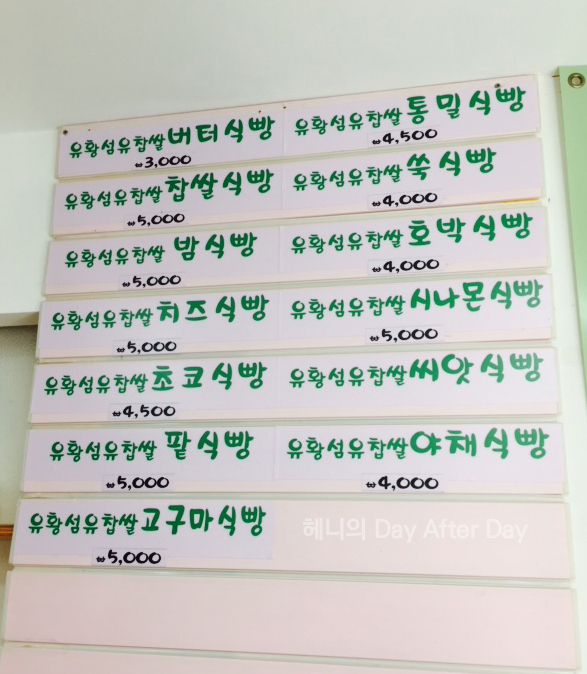 유황섬유찹쌀버터식빵
₩3,000
유황섬유찹쌀통밀식빵
₩4,500
유황섬유찹쌀찹쌀식빵
₩5,000
유황섬유찹쌀쑥식빵
₩4,000
유황섬유찹쌀밤식빵
₩5,000
유황섬유찹쌀호박식빵
₩4,000
유황섬유찹쌀치즈식빵
₩5,000
유황섬유찹쌀시나몬식빵
₩5,000
유황섬유찹쌀초코식빵
₩4,500
유황섬유찹쌀씨앗식빵
유황섬유찹쌀팥식빵
₩5,000
유황섬유찹쌀야채식빵
₩4,000
유황섬유찹쌀고구마식빵
₩5,000
헤니의 Day After Day